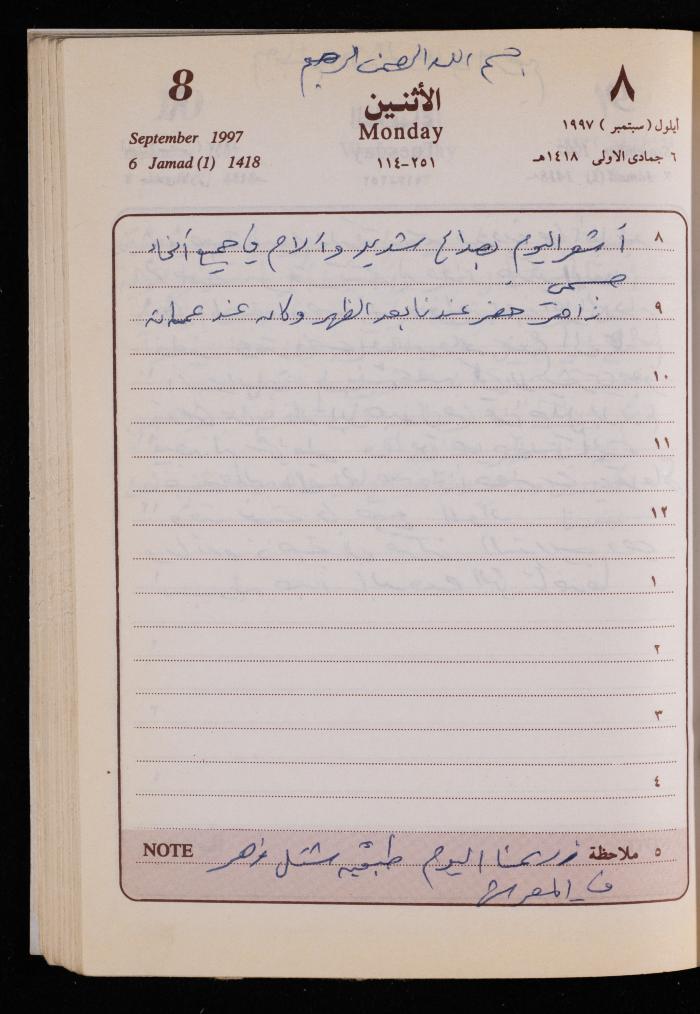 بسم الله الرحمن الرحيم
8
الأثنين
٨
September 1997
Monday
أيلول (سبتمبر) ١٩٩٧
6 Jamad (1) 1418
١١٤-٢٥١
٦ جمادى الاولى ١٤١٨هـ
٨ أشعر اليوم بصداع شديد وآلام في جميع أنحاء
جسمي
٩ حضر عندنا بعد الظهر وكان عند
١٠
١١
١٢
١
٢
٣
٤
NOTE ٥ ملاحظة زرعنا اليوم شتل زهر
في